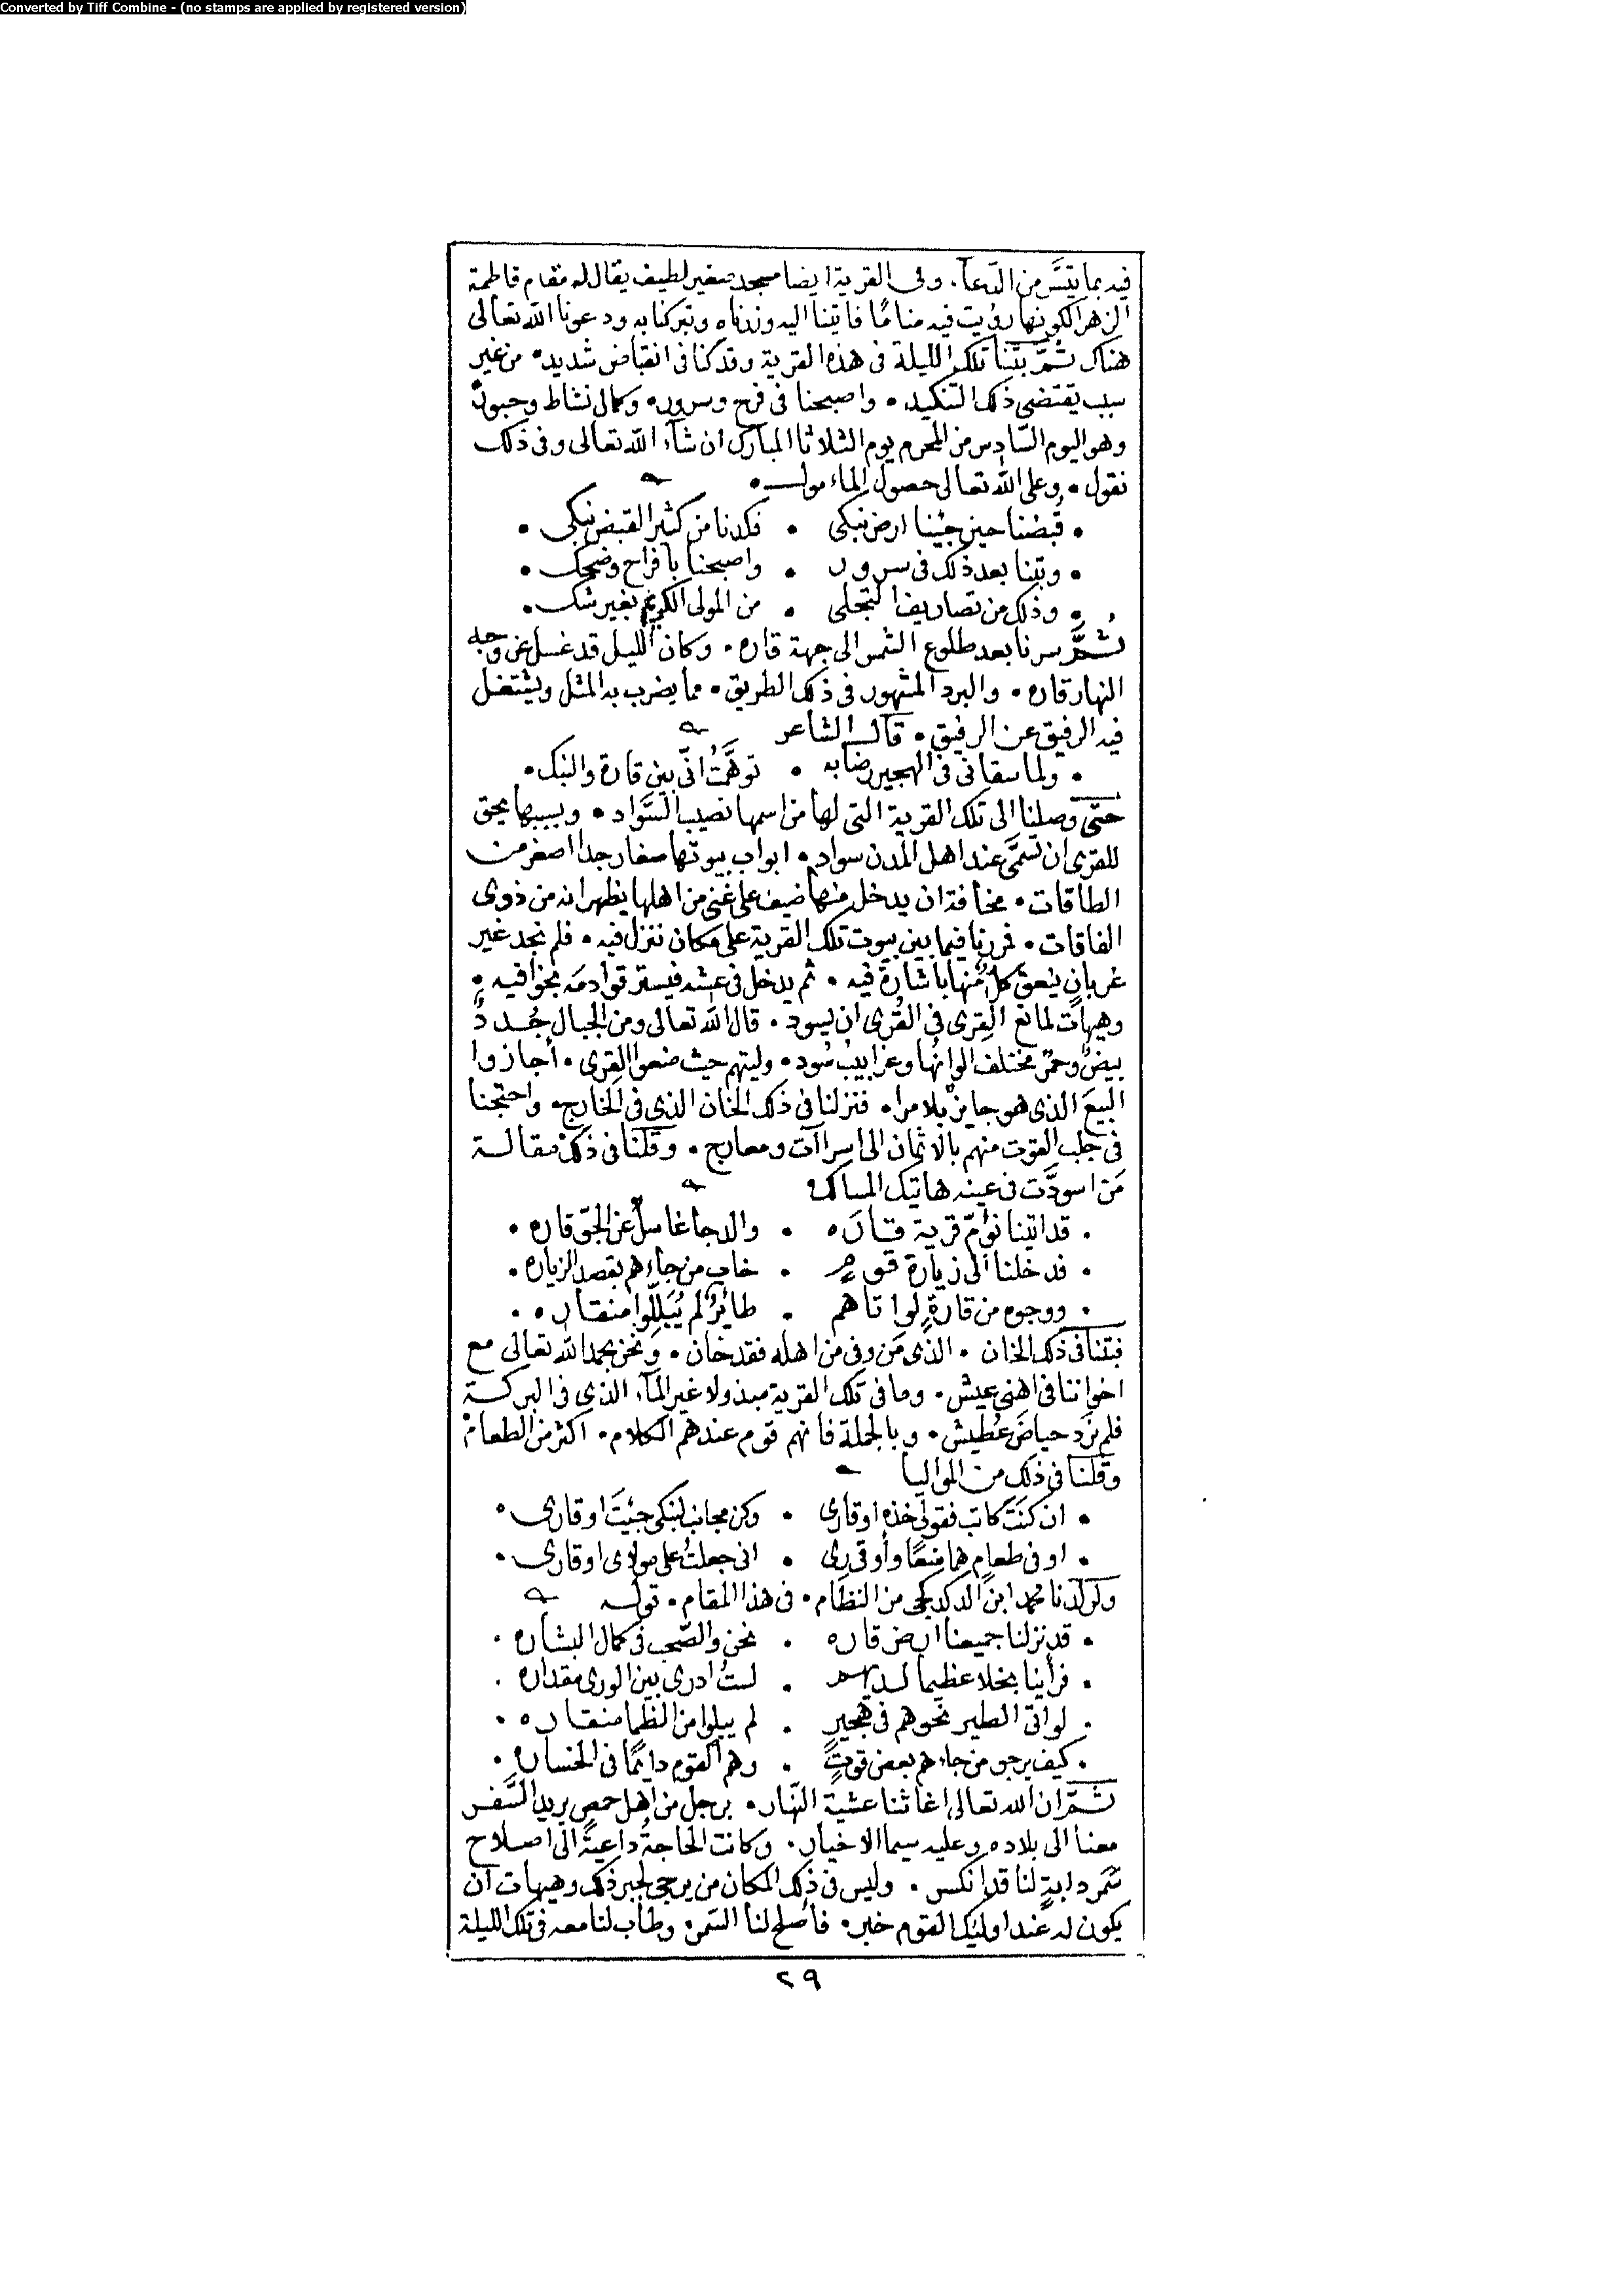 Converted by Tiff Combine - (no stamps are applied by registered version)
فيه بما يتيسَّر من الدّعآ. وفى القرية ايضا مسجد صغير لطيف يقال له مقام فاطمة
الزهرا لكونها رؤيت فيه منامًا فاتينا اليه وزرناه وتبركنا به ودعونا الله تعالى
هناك ثمَّ بتنا تلك الليلة فى هذه القرية وقد كنا فى انقباض شديد • من غير
سبب يقتضى ذلك التنكيد • واصبحنا فى فرح وسرور • وكمال نشاط وحبور
وهو اليوم السّادس من المحرم يوم الثلاثا المبارك ان شآء الله تعالى وفى ذلك
نقول • وعلى الله تعالى حصول الماءمول •
• قُبضنا حين جئنا ارض نبكى • فكدنا من كثير القبض نبكى •
• وبتنا بعد ذلك فى سرور • واصبحنا بافراح وضحك •
• وذلك من تصاريف التجلى • من المولى الكريم بغير شك •
ثُمَّ سرنا بعد طلوع الشمس الى جهة قاره • وكان الليل قد غسل عن وجه
النهار قاره • والبرد المشهور فى ذلك الطريق • مما يضرب به المثل ويشتغل
فيه الرفيق عن الرفيق • قال الشاعر
• ولما سقانى فى الهجير رضابه • توهَّمتُ انّى بين قارة والنبك •
حتى وصلنا الى تلك القرية التى لها من اسمها نصيب السَّواد • وبسببها يحق
للقرى ان تسمَّى عند اهل المدن سواد • ابواب بيوتها صغار جدا اصغر من
الطاقات • مخافة ان يدخل منها ضيف على غنى من اهلها يظهر انه من ذوى
الفاقات • فمررنا فيما بين بيوت تلك القرية على مكان ننزل فيه • فلم نجد غير
غربانٍ ينعق كلٌ منها باشارة فيه • ثم يدخل فى عشه فيستر قوادمه بخوافيه •
وهيهات لمانع القِرى فى القُرى ان يسود • قال الله تعالى ومن الجبال جُددٌ
بيضٌ وحمرٌ مختلف الوانها وغرابيب سُود • وليتهم حيث منعوا القِرى • أجازوا
البيعَ الذى هو جايز بلا مرا • فنزلنا فى ذلك الخان الذي فى الخارج • واحتجنا
فى جلب القوت منهم بالاثمان الى اسراآت ومعارج • وقلنا فى ذلك مقالة
مَن اسودَّت فى عينه هاتيك المسالك
• قد اتينا نؤمّ قرية قاره • والدجا غاسلٌ عن الجوّ قاره •
• فدخلنا الى زيارة قوم • خاب من جاءهم بقصد الزياره •
• ووجوه من قارةٍ لو اتاهم • طائرٌ لم يُبَلِّلوا منقاره •
فبتنا فى ذلك الخان • الذى مَن وفى من اهله فقد خان • ونحن بحمد الله تعالى مع
اخواننا فى اهنى عيش • وما فى تلك القرية مبذولا غير المآء الذي فى البركة
فلم نرَد حياضَ عُطيش • وبالجملة فانهم قوم عندهم الكلام • اكثر من الطعام
وقلنا فى ذلك من المواليا
• ان كنتَ كاتب فقولى خذه او قارى • وكن مجانب لنبكى جيتَ او قارى •
• او فى طعامِ هما منعًا وأوقرى • انى جعلتُ على مولاى اوقارى •
ولولدنا محمد ابن الدكدكجى من النظام • فى هذا المقام • قوله
• قد نزلنا جميعنا ارض قاره • نحن والصّحب فى كمال البشاره •
• فرأينا بخلا عظيما لديهم • لستُ ادرى بين الورى مقداره •
• لو اتى الطير نحوهم فى هجيرٍ • لم يبلوا من الظما منقاره •
• كيف يرجو من جاءهم بعض قوتٍ • وهم القوم دايمًا فى الخساره •
ثمَّ ان الله تعالى اغاثنا عشية النّهار • برجل من اهل حمص يريد السَّفر
معنا الى بلاده وعليه سيما الاخيار • وكانت الحاجةُ داعيةً الى اصلاح
سَمر دابةٍ لنا قد انكسر • وليس فى ذلك المكان من يرجى لجبر ذلك وهيهات ان
يكون له عند اوليك القوم خبر • فأصلح لنا السمر • وطاب لنا معه فى تلك الليلة
٢٩